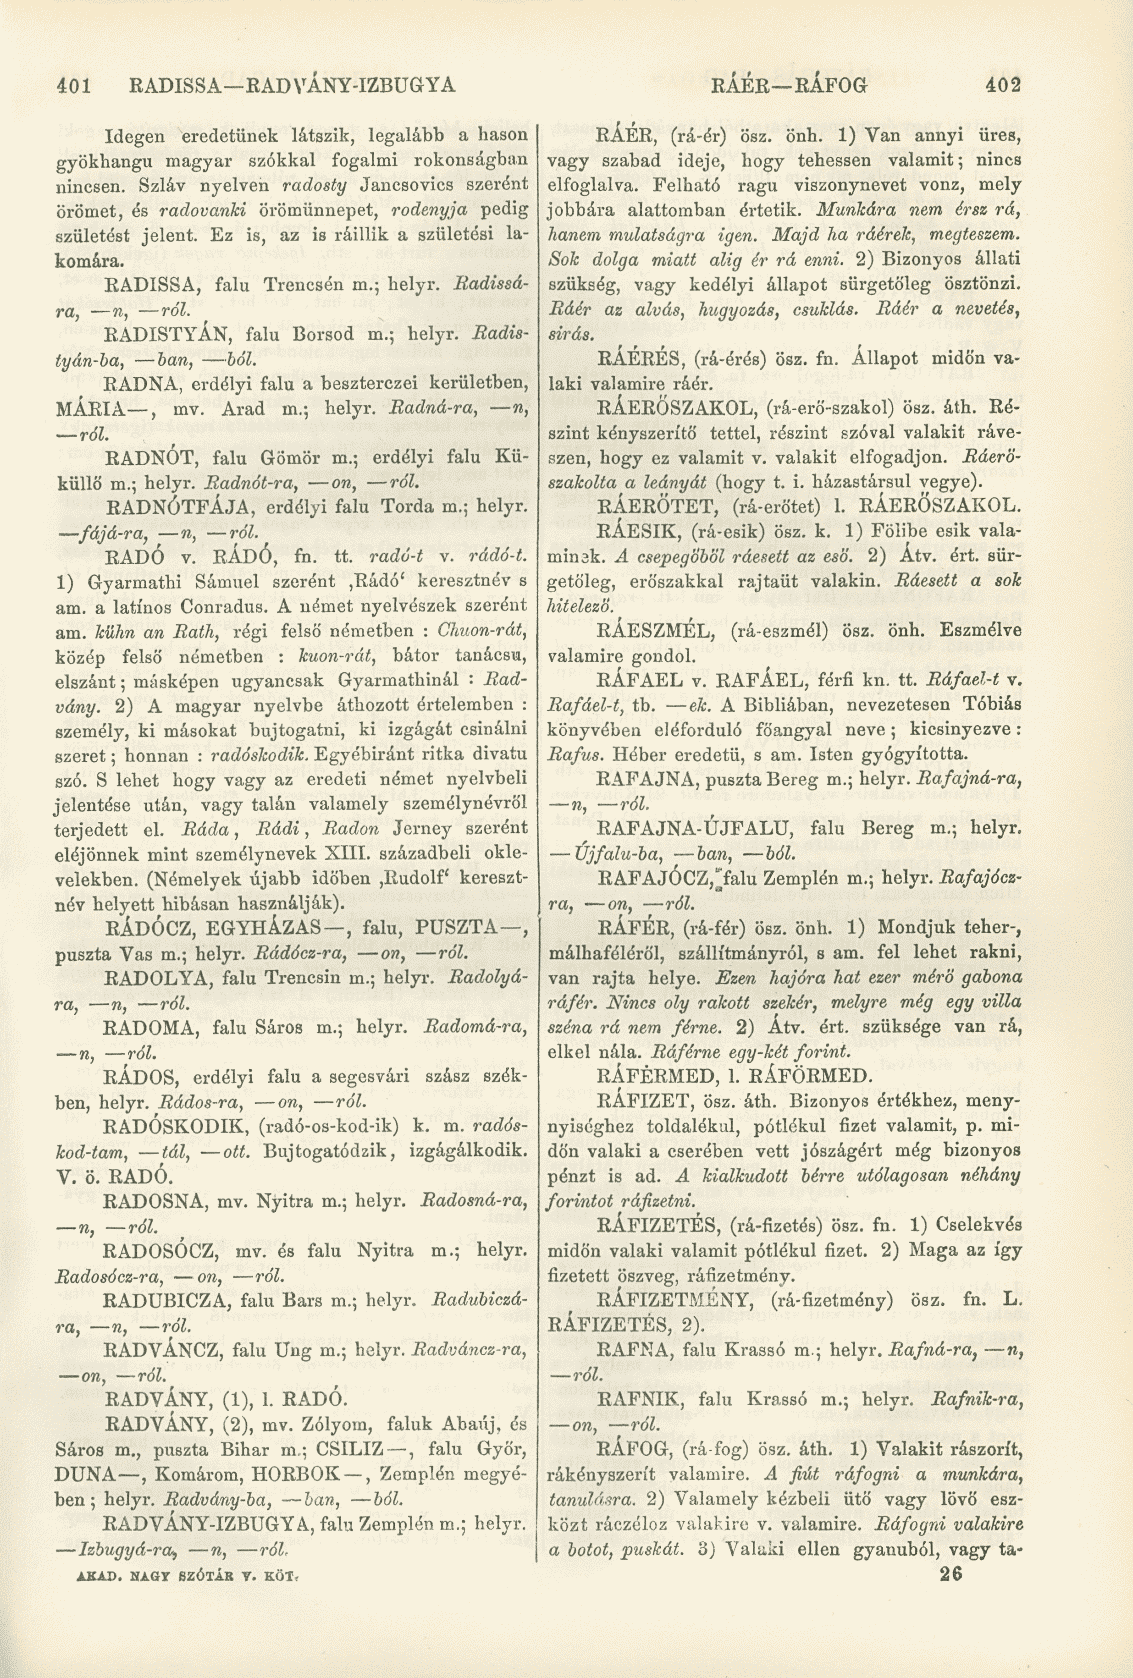 401 RADISSA—RADVÁNY-IZBUGYA
RÁÉR—RÁFOG 402
Idegen eredetünek látszik, legalább a hason
gyökhangu magyar szókkal fogalmi rokonságban
nincsen. Szláv nyelven radosty Jancsovics szerént
örömet, és radovanki örömünnepet, rodenyja pedig
születést jelent. Ez is, az is ráillik a születési la-
komára.
RADISSA, falu Trencsén m.; helyr. Radissá-
ra, —n, —ról.
RADISTYÁN, falu Borsod m.; helyr. Radis-
tyán-ba, —ban, —ból.
RADNA, erdélyi falu a beszterczei kerületben,
MÁRIA—, mv. Arad m.; helyr. Radná-ra, —n,
—ról.
RADNÓT, falu Gömör m.; erdélyi falu Kü-
küllő m.; helyr. Radnót-ra, —on, —ról.
RADNÓTFÁJA, erdélyi falu Torda m.; helyr.
—fájá-ra, —n, —ról.
RADÓ v. RÁDÓ, fn. tt. radó-t v. rádó-t.
1) Gyarmathi Sámuel szerént ‚Rádó‘ keresztnév s
am. a latínos Conradus. A német nyelvészek szerént
am. kühn an Rath, régi felső németben : Chuon-rát,
közép felső németben : kuon-rát, bátor tanácsu,
elszánt; másképen ugyancsak Gyarmathinál : Rad-
vány. 2) A magyar nyelvbe áthozott értelemben :
személy, ki másokat bujtogatni, ki izgágát csinálni
szeret; honnan : radóskodik. Egyébiránt ritka divatu
szó. S lehet hogy vagy az eredeti német nyelvbeli
jelentése után, vagy talán valamely személynévről
terjedett el. Ráda, Rádi, Radon Jerney szerént
eléjönnek mint személynevek XIII. századbeli okle-
velekben. (Némelyek újabb időben ‚Rudolf‘ kereszt-
név helyett hibásan használják).
RÁDÓCZ, EGYHÁZAS—, falu, PUSZTA—,
puszta Vas m.; helyr. Rádócz-ra, —on, —ról.
RADOLYA, falu Trencsin m.; helyr. Radolyá-
ra, —n, —ról.
RADOMA, falu Sáros m.; helyr. Radomá-ra,
—n, —ról.
RÁDOS, erdélyi falu a segesvári szász szék-
ben, helyr. Rádos-ra, —on, —ról.
RADÓSKODIK, (radó-os-kod-ik) k. m. radós-
kod-tam, —tál, —ott. Bujtogatódzik, izgágálkodik.
V. ö. RADÓ.
RADOSNA, mv. Nyitra m.; helyr. Radosná-ra,
—n, —ról.
RADOSÓCZ, mv. és falu Nyitra m.; helyr.
Radosócz-ra, —on, —ról.
RADUBICZA, falu Bars m.; helyr. Radubiczá-
ra, —n, —ról.
RADVÁNCZ, falu Ung m.; helyr. Radváncz-ra,
—on, —ról.
RADVÁNY, (1), l. RADÓ.
RADVÁNY, (2), mv. Zólyom, faluk Abaúj, és
Sáros m., puszta Bihar m.; CSILIZ—, falu Győr,
DUNA—, Komárom, HORBOK—, Zemplén megyé-
ben; helyr. Radvány-ba, —ban, —ból.
RADVÁNY-IZBUGYA, falu Zemplén m.; helyr.
—Izbugyá-ra, —n, —ról.
AKAD. NAGY SZÓTÁR V. KÖT.
RÁÉR, (rá-ér) ösz. önh. 1) Van annyi üres,
vagy szabad ideje, hogy tehessen valamit; nincs
elfoglalva. Felható ragu viszonynevet vonz, mely
jobbára alattomban értetik. Munkára nem érsz rá,
hanem mulatságra igen. Majd ha ráérek, megteszem.
Sok dolga miatt alig ér rá enni. 2) Bizonyos állati
szükség, vagy kedélyi állapot sürgetőleg ösztönzi.
Ráér az alvás, hugyozás, csuklás. Ráér a nevetés,
sirás.
RÁÉRÉS, (rá-érés) ösz. fn. Állapot midőn va-
laki valamire ráér.
RÁERŐSZAKOL, (rá-erő-szakol) ösz. áth. Ré-
szint kényszerítő tettel, részint szóval valakit ráve-
szen, hogy ez valamit v. valakit elfogadjon. Ráerő-
szakolta a leányát (hogy t. i. házastársul vegye).
RÁERŐTET, (rá-erőtet) l. RÁERŐSZAKOL.
RÁESIK, (rá-esik) ösz. k. 1) Fölibe esik vala-
minek. A csepegőből ráesett az eső. 2) Átv. ért. sür-
getőleg, erőszakkal rajtaüt valakin. Ráesett a sok
hitelező.
RÁESZMÉL, (rá-eszmél) ösz. önh. Eszmélve
valamire gondol.
RÁFAEL v. RAFÁEL, férfi kn. tt. Ráfael-t v.
Rafáel-t, tb. —ek. A Bibliában, nevezetesen Tóbiás
könyvében eléforduló főangyal neve; kicsinyezve:
Rafus. Héber eredetü, s am. Isten gyógyította.
RAFAJNA, puszta Bereg m.; helyr. Rafajná-ra,
—n, —ról.
RAFAJNA-ÚJFALU, falu Bereg m.; helyr.
—Újfalu-ba, —ban, —ból.
RAFAJÓCZ, falu Zemplén m.; helyr. Rafajócz-
ra, —on, —ról.
RÁFÉR, (rá-fér) ösz. önh. 1) Mondjuk teher-,
málhaféléről, szállítmányról, s am. fel lehet rakni,
van rajta helye. Ezen hajóra hat ezer mérő gabona
ráfér. Nincs oly rakott szekér, melyre még egy villa
széna rá nem férne. 2) Átv. ért. szüksége van rá,
elkel nála. Ráférne egy-két forint.
RÁFĖRMED, l. RÁFÖRMED.
RÁFIZET, ösz. áth. Bizonyos értékhez, meny-
nyiséghez toldalékul, pótlékul fizet valamit, p. mi-
dőn valaki a cserében vett jószágért még bizonyos
pénzt is ad. A kialkudott bérre utólagosan néhány
forintot ráfizetni.
RÁFIZETÉS, (rá-fizetés) ösz. fn. 1) Cselekvés
midőn valaki valamit pótlékul fizet. 2) Maga az így
fizetett öszveg, ráfizetmény.
RÁFIZETMÉNY, (rá-fizetmény) ösz. fn. L.
RÁFIZETÉS, 2).
RAFNA, falu Krassó m.; helyr. Rafná-ra, —n,
—ról.
RAFNIK, falu Krassó m.; helyr. Rafnik-ra,
—on, —ról.
RÁFOG, (rá-fog) ösz. áth. 1) Valakit rászorít,
rákényszerít valamire. A fiút ráfogni a munkára,
tanulásra. 2) Valamely kézbeli ütő vagy lövő esz-
közt ráczéloz valakire v. valamire. Ráfogni valakire
a botot, puskát. 3) Valaki ellen gyanuból, vagy ta-
26